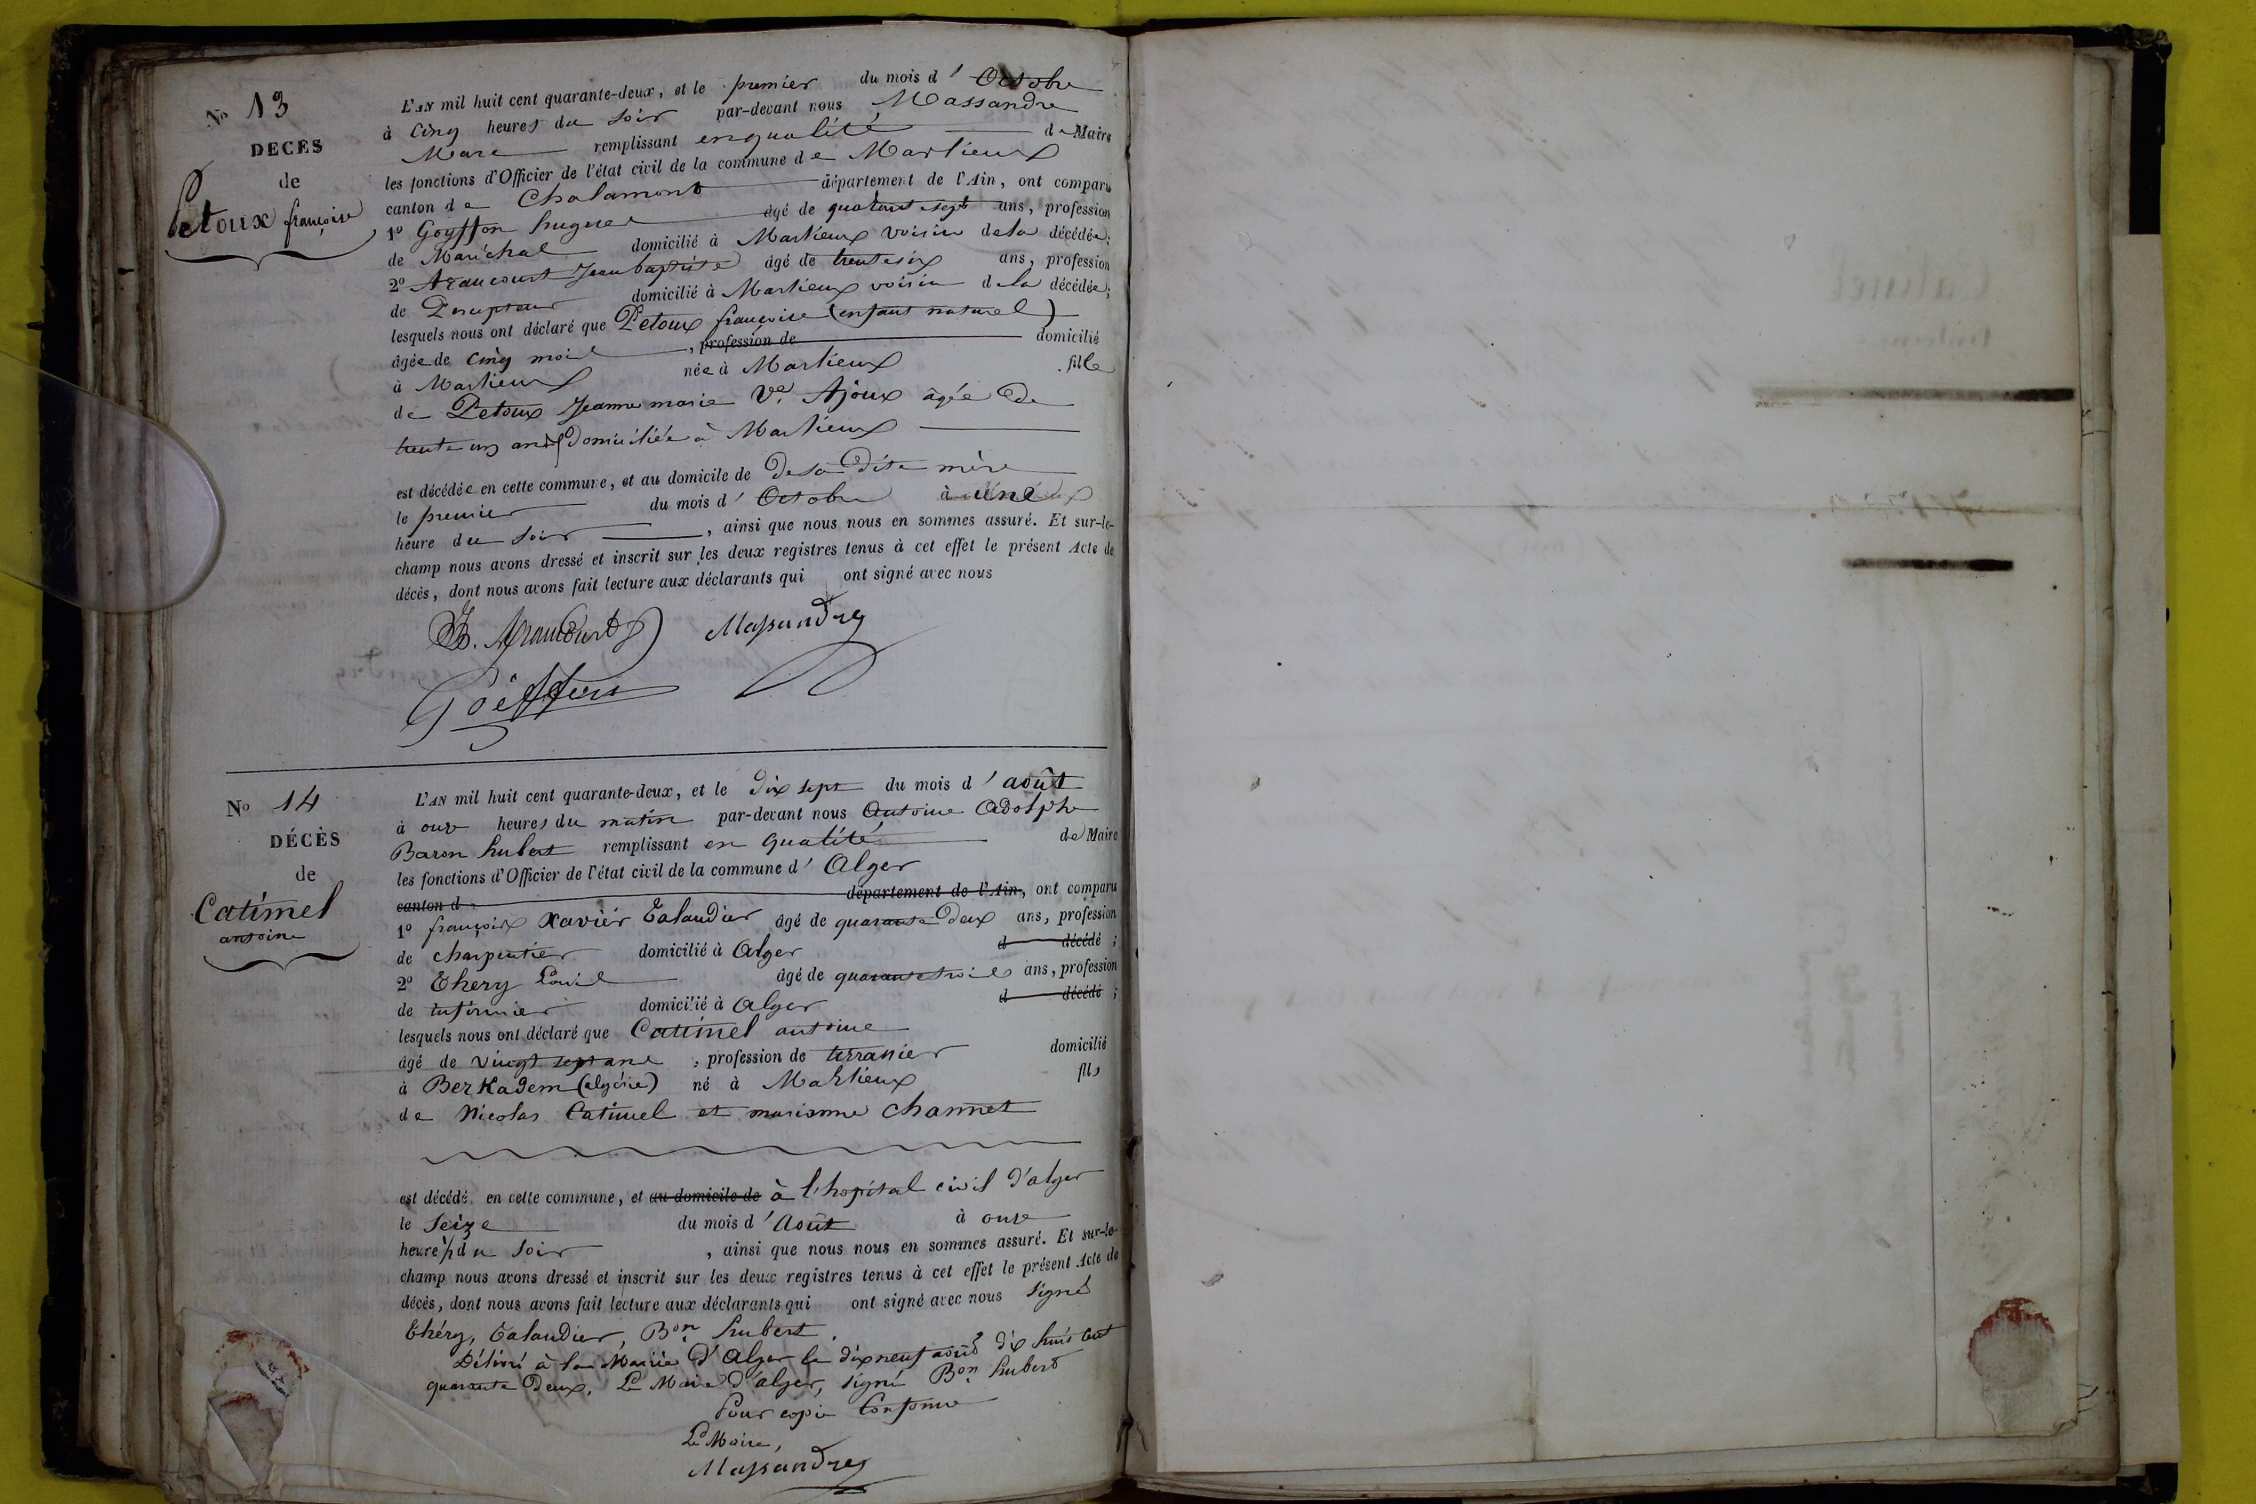 No 13
DECES
de
Petoux françoise
L'AN mil huit cent quarante-deux, et le premier du mois d' Octobre
à Cinq heures du Soir par-devant nous Massandre
Marc remplissant en qualité de Maire
les fonctions d'Officier de l'état civil de la commune de Marlieux
canton de Chalamont département de l'Ain, ont comparu
1o Goyffon hugues âgé de quarante sept ans, profession
de Maréchal domicilié à Marlieux voisin de la décédée;
2o Araucourt Jean baptiste âgé de trente six ans, profession
de Percepteur domicilié à Marlieux voisin de la décédée;
lesquels nous ont déclaré que Petoux françoise (enfant naturel)
âgée de Cinq mois, profession de domicilié
à Marlieux née à Marlieux fille
de Petoux Jeanne marie Ve Ajoux âgée de
trente ans domiciliée à Marlieux
est décédée en cette commune, et au domicile de De sa Dite mère
le premier du mois d' Octobre à une
heure du Soir, ainsi que nous nous en sommes assuré. Et sur-le-
champ nous avons dressé et inscrit sur les deux registres tenus à cet effet le présent Acte de
décès, dont nous avons fait lecture aux déclarants qui ont signé avec nous
JB. Araucourt Massandre
Goiffon
No 14
DÉCÈS
de
Catimel
antoine
L'AN mil huit cent quarante-deux, et le Dix sept du mois d' août
à onze heures du matin par-devant nous Antoine Adolphe
Baron hubert remplissant en qualité de Maire
les fonctions d'Officier de l'état civil de la commune d' Alger
canton d département de l'Ain, ont comparu
1o françois Xavier Talaudier âgé de quarante Deux ans, profession
de charpentier domicilié à Alger d décédé;
2o Thery Louis âgé de quarante trois ans, profession
de infirmier domicilié à Alger d décédé;
lesquels nous ont déclaré que Catimel antoine
âgé de Vingt sept ans, profession de terrassier domicilié
à Berkadem (algérie) né à Marlieux fils
de Nicolas Catimel et marianne channet
est décédé en cette commune, et au domicile de à l'hopital civil d'alger
le Seize du mois d' Août à onze
heures du Soir, ainsi que nous nous en sommes assuré. Et sur-le-
champ nous avons dressé et inscrit sur les deux registres tenus à cet effet le présent Acte de
décès, dont nous avons fait lecture aux déclarants qui ont signé avec nous Signé
Théry, Talaudier, Bon hubert.
Délivré à la Mairie d'Alger le dix neuf août dix huit cent
quarante Deux, Le Maire d'alger, signé Bon hubert
Pour copie Conforme
Le Maire,
Massandre